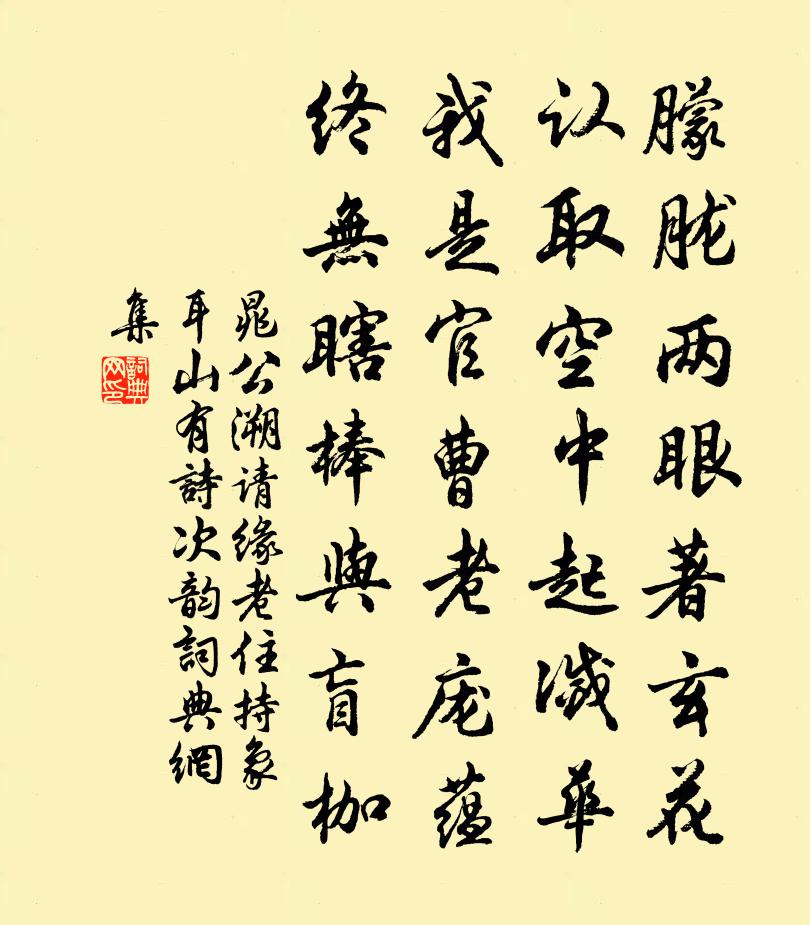 朦胧两眼著玄花
认取空中起滅華
我是官曹老庞蕴
终無瞎棒與盲枷
晁公溯请缘老住持象
耳山有詩次韵詞典網
集
詞典
网印